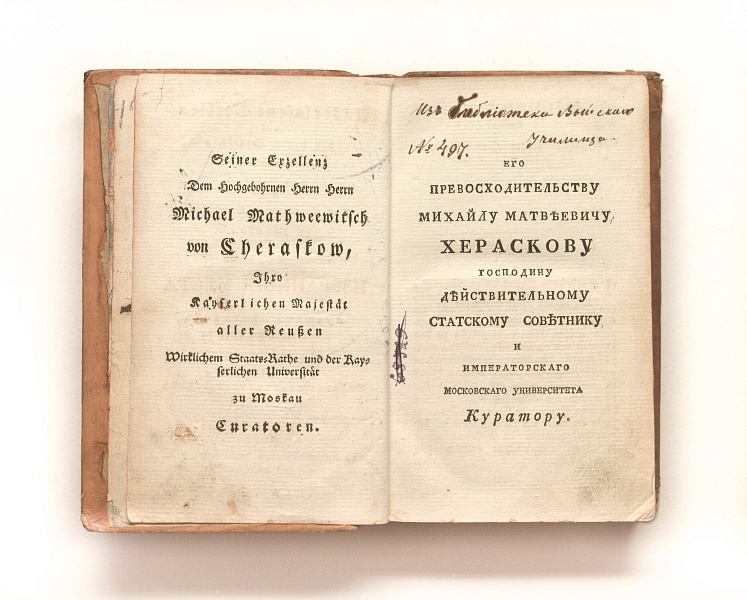 Seiner Exzellenz
Dem Hochgebohrnen Herrn Herrn
Michael Mathweewitsch
von Cheraskow,
Ihro
Kayserlichen Majestät
aller Reußen
Wirklichem Staats-Rathe und der Kay-
serlichen Universität
zu Moskau
Curatoren.
Изъ библіотеки
Училища
№ 497.
ЕГО
ПРЕВОСХОДИТЕЛЬСТВУ
МИХАЙЛУ МАТВѢЕВИЧУ
ХЕРАСКОВУ
ГОСПОДИНУ
ДѢЙСТВИТЕЛЬНОМУ
СТАТСКОМУ СОВѢТНИКУ
И
ИМПЕРАТОРСКАГО
МОСКОВСКАГО УНИВЕРСИТЕТА
Куратору.